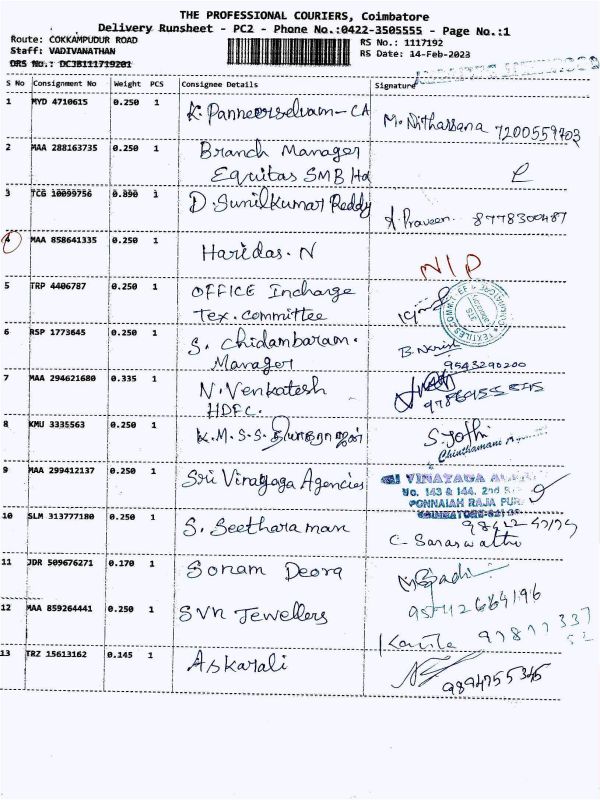 THE PROFESSIONAL COURIERS, Coimbatore
Delivery Runsheet - PC2 - Phone No.:0422-3505555 - Page No.:1
Route: COKKAMPUDUR ROAD
RS No.: 1117192
Staff: VADIVANATHAN
RS Date: 14-Feb-2023
DRS No.: DCJB111719201
S No Consignment No Weight PCS Consignee Details Signature
1 MYD 4710615 0.250 1 K. Panneerselvam - CA M. Nitharsana 7200559403
2 MAA 288163735 0.250 1 Branch Manager
Equitas SMB Ltd
3 TCG 10099756 0.890 1 D. Sunilkumar Reddy A. Praveen 8778300487
4 MAA 858641335 0.250 1 Haridas. N NIP
5 TRP 4406787 0.250 1 OFFICE Incharge
Tex. Committee
6 RSP 1773645 0.250 1 S. Chidambaram.
Manager
9543290200
7 MAA 294621680 0.335 1 N. Venkatesh
HDFC.
8 KMU 3335563 0.250 1 K.M.S.S. தியாகராஜன் S. Jothi
Chinthamani
9 MAA 299412137 0.250 1 Sri Vinayaga Agencies SRI VINAYAGA
No. 143 & 144, 2nd
PONNAIAH RAJA PURAM
COIMBATORE
10 SLM 313777180 0.250 1 S. Seetharaman C. Saraswathi
11 JDR 509676271 0.170 1 Sonam Deora
12 MAA 859264441 0.250 1 SVR Jewellers
13 TRZ 15613162 0.145 1 Askarali 9894755345